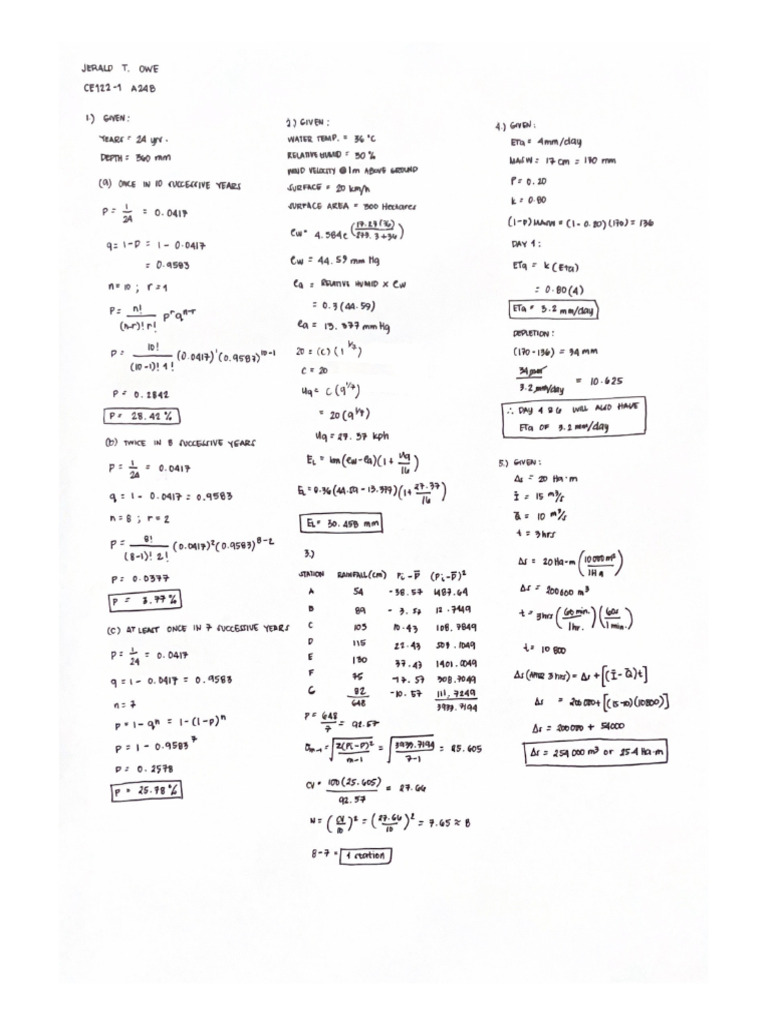 JERALD T. OWE
CE122-1 A24B
1.) GIVEN:
YEARS = 24 yrs.
DEPTH = 360 mm
(a) ONCE IN 10 SUCCESSIVE YEARS
P = 1/24 = 0.0417
q = 1-P = 1 - 0.0417
= 0.9583
n = 10 ; r = 1
P = n!/(n-r)! r! P^r q^n-r
P = 10!/(10-1)! 1! (0.0417)^1 (0.9583)^10-1
P = 0.2842
P = 28.42 %
(b) TWICE IN 8 SUCCESSIVE YEARS
P = 1/24 = 0.0417
q = 1 - 0.0417 = 0.9583
n = 8 ; r = 2
P = 8!/(8-1)! 2! (0.0417)^2 (0.9583)^8-2
P = 0.0377
P = 3.77 %
(c) AT LEAST ONCE IN 7 SUCCESSIVE YEARS
P = 1/24 = 0.0417
q = 1 - 0.0417 = 0.9583
n = 7
P = 1 - q^n = 1 - (1-P)^n
P = 1 - 0.9583^7
P = 0.2578
P = 25.78 %
2) GIVEN:
WATER TEMP. = 36 °C
RELATIVE HUMID = 30 %
WIND VELOCITY @ 1m ABOVE GROUND
SURFACE = 20 km/h
SURFACE AREA = 300 Hectares
ew = 4.584e^(17.27(36)/273.3+36)
ew = 44.59 mm Hg
ea = RELATIVE HUMID x ew
= 0.3 (44.59)
ea = 13.377 mm Hg
20 = (C) (1^1/7)
C = 20
U9 = C (9^1/7)
= 20 (9^1/7)
U9 = 27.37 kph
EL = km (ew - ea) (1 + U9/16)
EL = 0.36 (44.59 - 13.377) (1 + 27.37/16)
EL = 30.458 mm
3.)
STATION RAINFALL (cm) Pi - P̄ (Pi - P̄)^2
A 54 -38.57 1487.64
B 89 -3.57 12.7449
C 103 10.43 108.7849
D 115 22.43 503.1049
E 130 37.43 1401.0049
F 75 -17.57 308.7049
G 82 -10.57 111.7249
648 3933.7194
P = 648/7 = 92.57
σm-1 = √Σ(Pi-P)^2/m-1 = √3933.7194/7-1 = 25.605
CV = 100 (25.605)/92.57 = 27.66
N = (CV/10)^2 = (27.66/10)^2 = 7.65 ≈ 8
8-7 = 1 station
4.) GIVEN:
ETa = 4mm/day
MASW = 17 cm = 170 mm
P = 0.20
k = 0.80
(1-P) MASW = (1 - 0.20) (170) = 136
DAY 1:
ETa = k (ETa)
= 0.80 (4)
ETa = 3.2 mm/day
DEPLETION:
(170 - 136) = 34 mm
34 mm/3.2 mm/day = 10.625
∴ DAY 4 & 6 WILL ALSO HAVE
ETa OF 3.2 mm/day
5.) GIVEN:
Δs = 20 Ha·m
Ī = 15 m^3/s
Q̄ = 10 m^3/s
t = 3 hrs
Δs = 20 Ha·m (10 000 m^2/1 Ha)
Δs = 200 000 m^3
t = 3 hrs (60 min./1 hr.) (60s/1 min.)
t = 10 800
Δs (AFTER 3 hrs) = Δs + [(Ī - Q̄) t]
Δs = 200 000 + [(15-10) (10800)]
Δs = 200 000 + 54000
Δs = 254 000 m^3 or 25.4 Ha·m